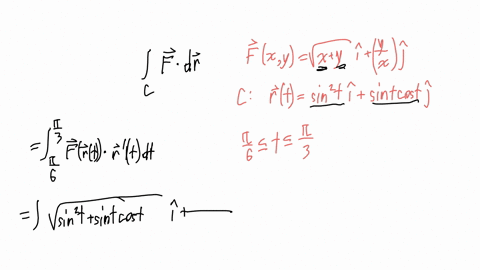 ∫_C F⃗ · dr⃗
F⃗(x,y) = √(x+y) î + (y/x) ĵ
C: r⃗(t) = sin²t î + sint cost ĵ
π/6 ≤ t ≤ π/3
= ∫_{π/6}^{π/3} F⃗(r⃗(t)) · r⃗'(t) dt
= ∫ √(sin²t + sint cost) î +